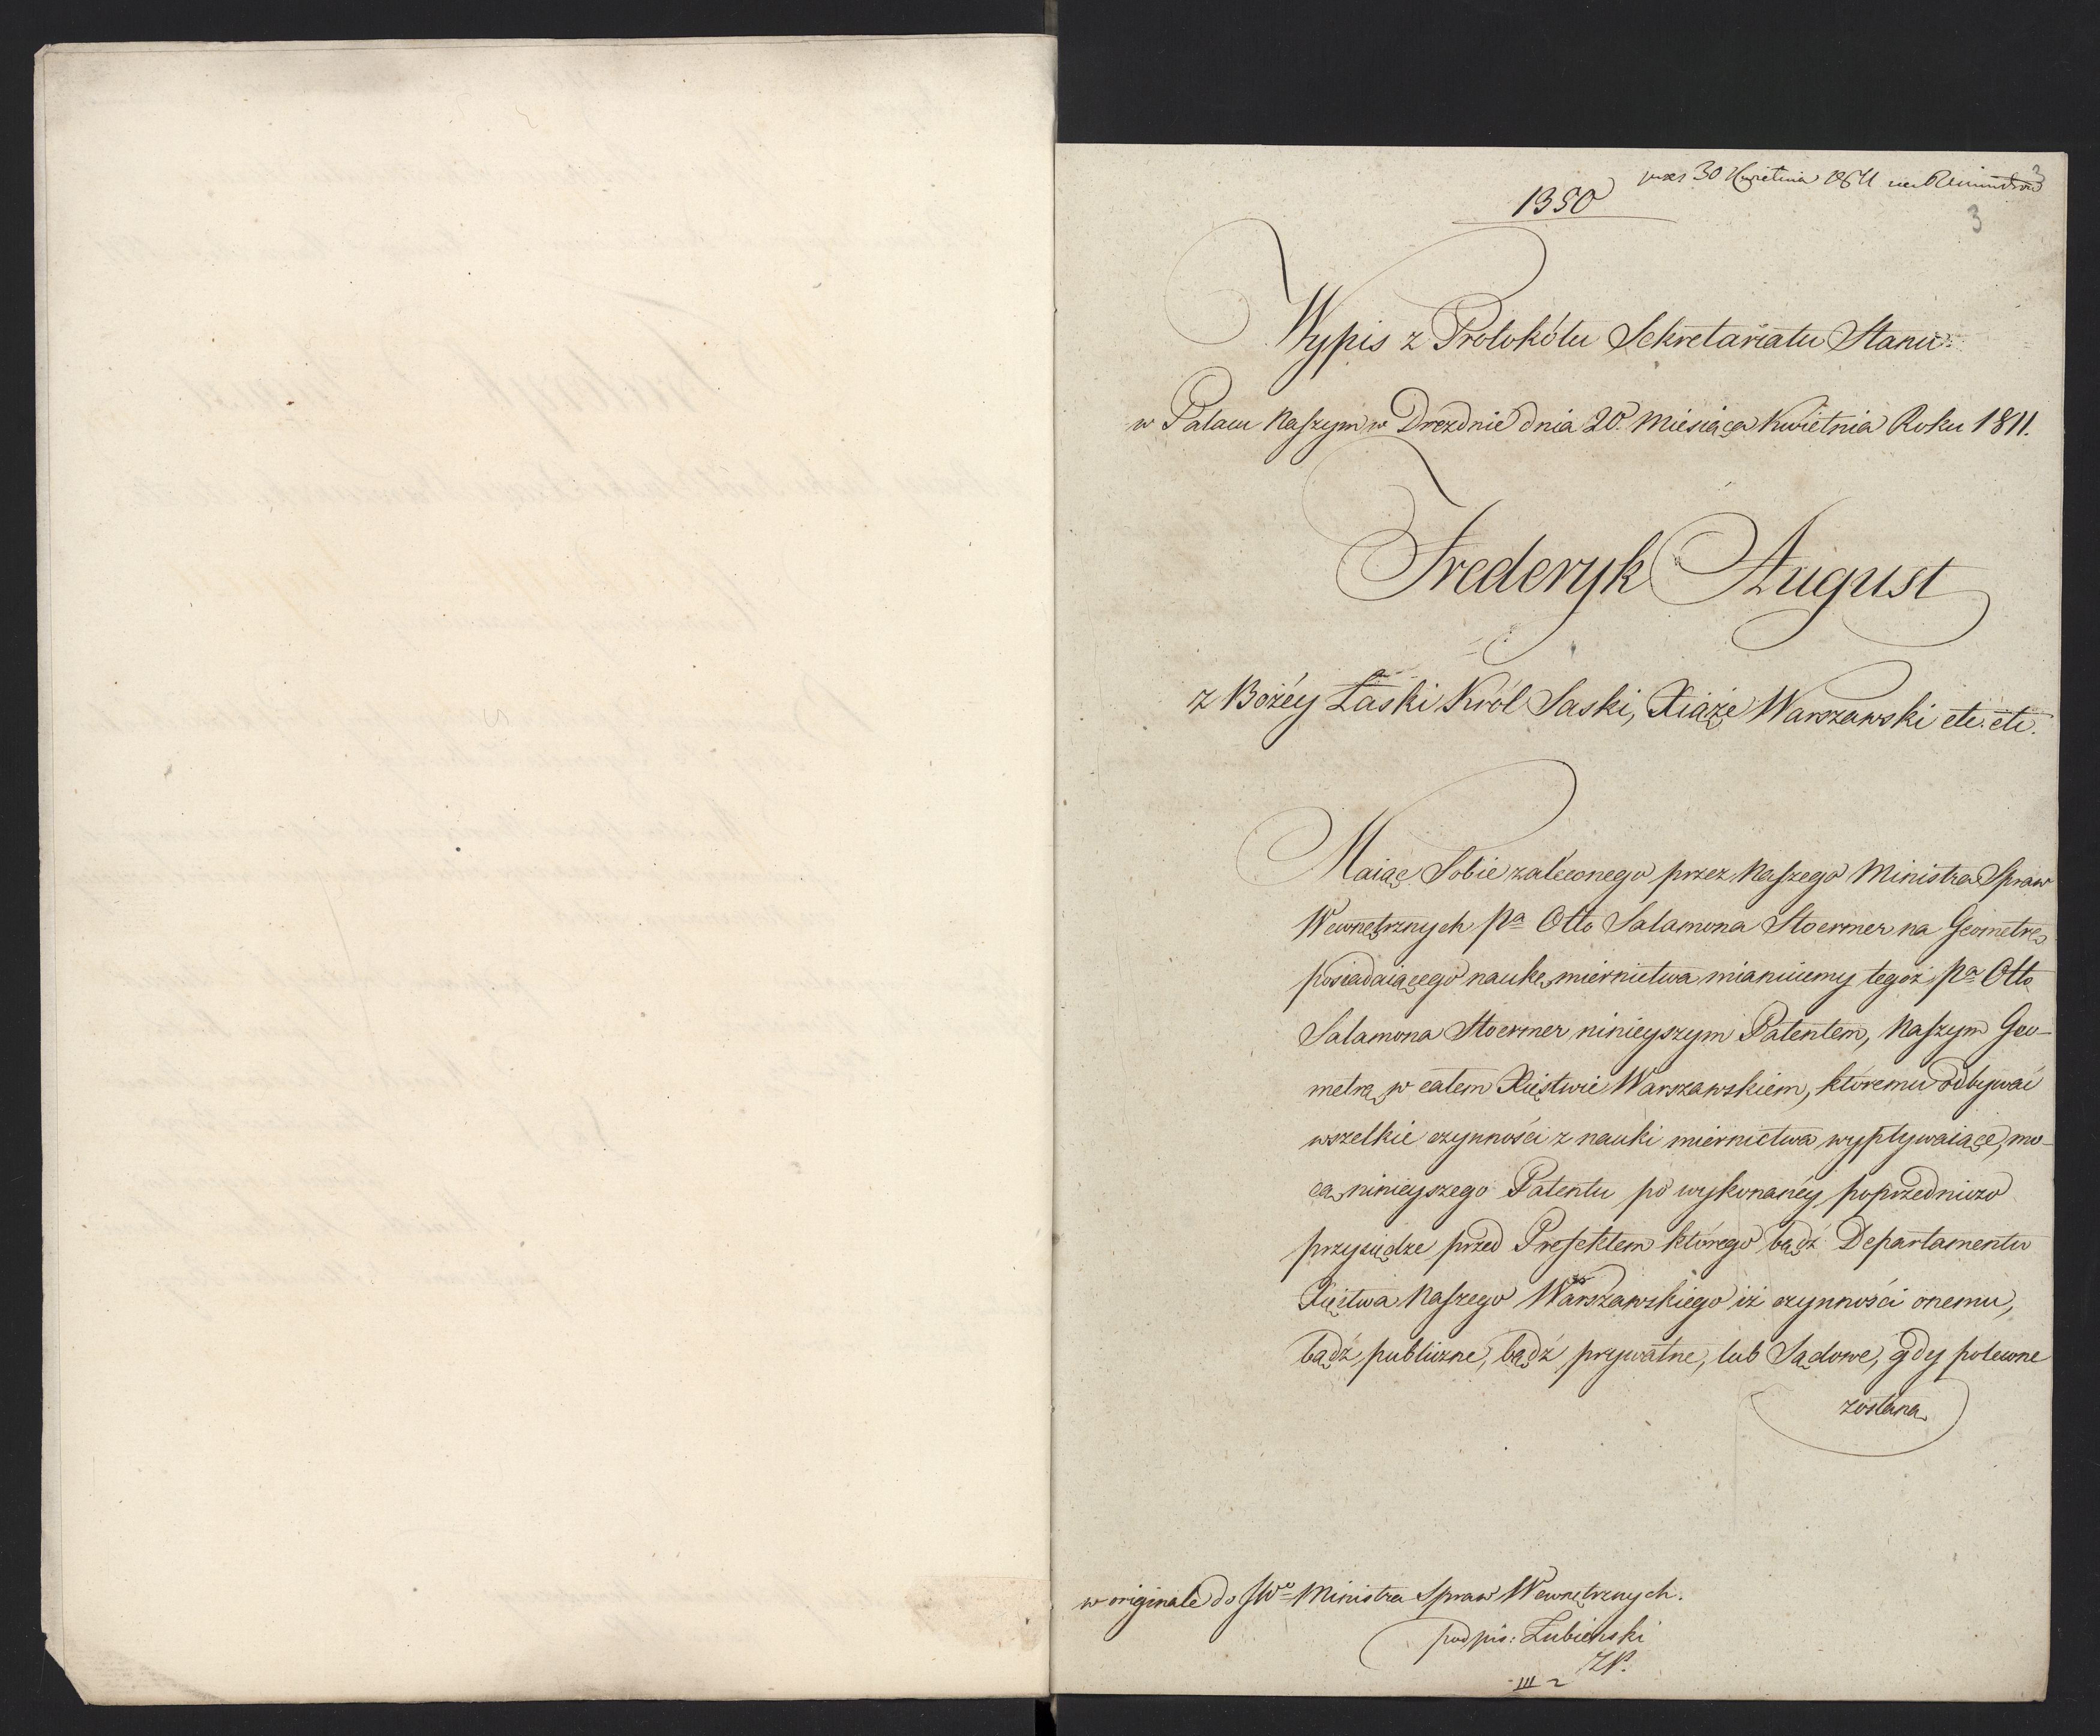 30 Kwietnia 1811
3
1350
3
Wypis z Protokółu Sekretariatu Stanu
w Pałacu Naszym w Dreżdnie dnia 20. Miesiąca Kwietnia Roku 1811.
Frederyk August
z Bożéy Łaski Król Saski, Xiąże Warszawski etc. etc.
Maiąc Sobie zaleconego przez Naszego Ministra Spraw
Wewnętrznych Pa Otto Salamona Stoermer na Geometrę
posiadaiącego naukę miernictwa mianuiemy tegoż Pa Otto
Salamona Stoermer ninieyszym Patentem, Naszym Geo-
metrą w całem Xięstwie Warszawskiem, któremu odbywać
wszelkie czynności z nauki miernictwa wypływaiące, mo-
cą ninieyszego Patentu po wykonanéy poprzedniczo
przysiędze przed Prefektem którego bądź Departamentu
Xięstwa Naszego Warszawskiego iż czynności onemu,
bądź publiczne, bądź prywatne, lub Sądowe, gdy polecone
zostaną
w originale do JWo Ministra Spraw Wewnętrznych.
podpis: Łubieński
III 2